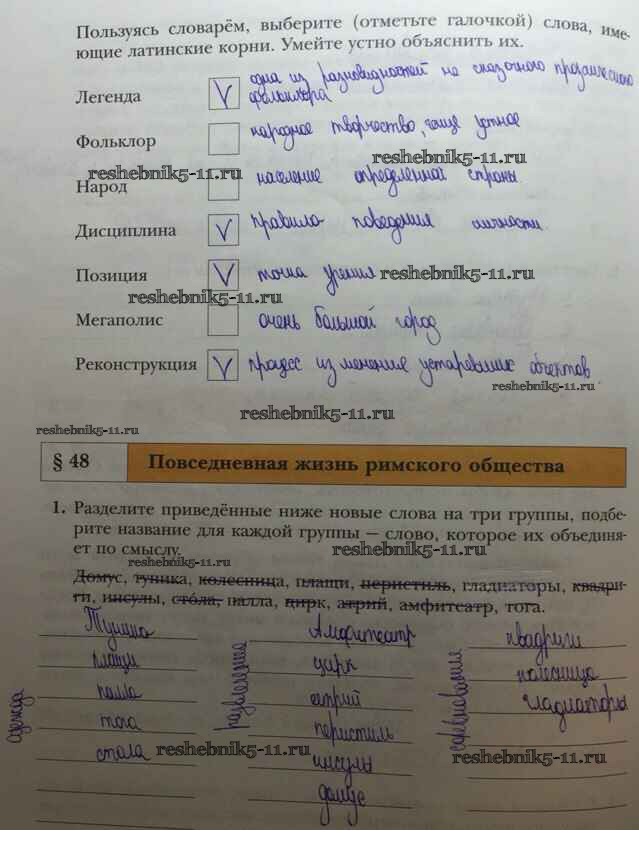 Пользуясь словарём, выберите (отметьте галочкой) слова, име-
ющие латинские корни. Умейте устно объяснить их.
Легенда V одна из разновидностей не сказочного прозаического
фольклора
Фольклор народное творчество, чаще устное
reshebnik5-11.ru reshebnik5-11.ru
Народ население определенной страны
Дисциплина V правила поведения личности
Позиция V точка зрения reshebnik5-11.ru
reshebnik5-11.ru
Мегаполис очень большой город
Реконструкция V процесс изменение устаревших объектов
reshebnik5-11.ru
reshebnik5-11.ru
reshebnik5-11.ru
§ 48 Повседневная жизнь римского общества
1. Разделите приведённые ниже новые слова на три группы, подбе-
рите название для каждой группы — слово, которое их объединя-
ет по смыслу. reshebnik5-11.ru
reshebnik5-11.ru
Домус, туника, колесница, плащи, перистиль, гладиаторы, квадри-
ги, инсулы, стола, палла, цирк, атрий, амфитеатр, тога.
Туника Амфитеатр квадриги
плащи цирк колесница
палла атрий гладиаторы
тога перистиль
стола reshebnik5-11.ru инсулы reshebnik5-11.ru
домус
одежда
развлечение
соревнования